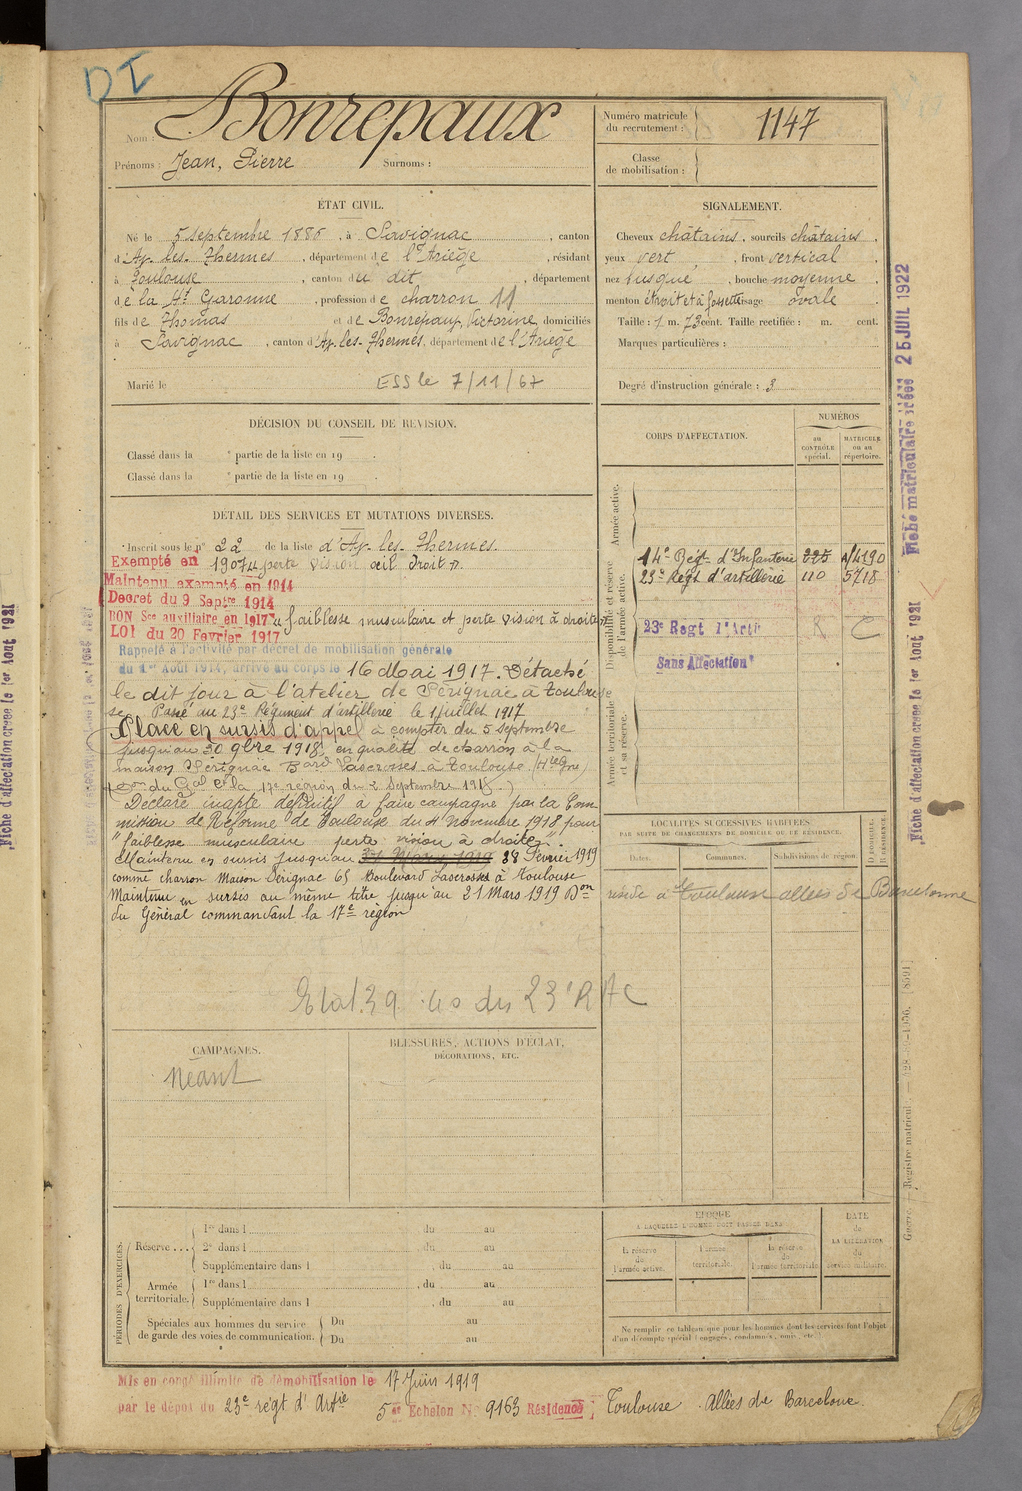 DI
Nom : Bonrepaux
Prénoms : Jean, Pierre Surnoms :
Numéro matricule du recrutement : 1147
Classe de mobilisation :
ÉTAT CIVIL.
Né le 5 septembre 1886, à Savignac, canton
d'Ax-les-Thermes, département de l'Ariège, résidant
à Toulouse, canton du dit, département
de la Hte Garonne, profession de charron 11
fils de Thomas et de Bonrepaux Victorine, domiciliés
à Savignac, canton d'Ax-les-Thermes, département de l'Ariège
Marié le ESS le 7/11/67
SIGNALEMENT.
Cheveux châtains, sourcils châtains,
yeux vert, front vertical,
nez busqué, bouche moyenne,
menton étroit et à fossette visage ovale.
Taille : 1 m. 73 cent. Taille rectifiée : m. cent.
Marques particulières :
Degré d'instruction générale : 3
DÉCISION DU CONSEIL DE REVISION.
Classé dans la e partie de la liste en 19 .
Classé dans la e partie de la liste en 19 .
DÉTAIL DES SERVICES ET MUTATIONS DIVERSES.
Inscrit sous le n° 22 de la liste d'Ax-les-Thermes.
Exempté en 1907 " perte vision œil droit ".
Maintenu exempté en 1914
Décret du 9 Septre 1914
BON Sce auxiliaire en 1917 " faiblesse musculaire et perte vision à droite "
LOI du 20 Fevrier 1917
Rappelé à l'activité par décret de mobilisation générale
du 1er Août 1914, arrivé au corps le 16 Mai 1917. Détaché
le dit jour à l'atelier de Sérignac à Toulouse
Passé au 23e Régiment d'artillerie le 1 juillet 1917
Placé en sursis d'appel à compter du 5 septembre
jusqu'au 30 9bre 1918, en qualité de charron à la
maison Sérignac Bard Lascrosses à Toulouse (Hte Gne)
(Don du Gal Ct la 17e région du 2 Septembre 1918.)
Déclaré inapte définitif à faire campagne par la Com-
mission de Réforme de Toulouse du 4 novembre 1918 pour
"faiblesse musculaire perte vision à droite".
Maintenu en sursis jusqu'au 31 Mars 1919 28 Février 1919
comme charron Maison Sérignac 65 Boulevard Lascrosses à Toulouse
Maintenu en sursis au même titre jusqu'au 21 Mars 1919 Don
du Général commandant la 17e région
CORPS D'AFFECTATION.
NUMÉROS
au CONTRÔLE spécial.
MATRICULE ou au répertoire.
Armée active.
Disponibilité et réserve de l'armée active.
14e Régt d'Infanterie 225 4190
23e Régt d'artillerie 110 5718
23e Regt d'Artie R C
Sans Affectation
Armée territoriale et sa réserve.
LOCALITÉS SUCCESSIVES HABITÉES
PAR SUITE DE CHANGEMENTS DE DOMICILE OU DE RÉSIDENCE.
Dates. Communes. Subdivisions de région. D DOMICILE. R RÉSIDENCE.
réside à Toulouse allées de Barcelonne
CAMPAGNES.
Néant
BLESSURES, ACTIONS D'ÉCLAT,
DÉCORATIONS, ETC.
PÉRIODES D'EXERCICES.
Réserve ...
1re dans l du au
2e dans l du au
Supplémentaire dans l du au
Armée territoriale.
1re dans l , du au
Supplémentaire dans l , du au
Spéciales aux hommes du service
de garde des voies de communication.
Du au
Du au
ÉPOQUE
À LAQUELLE L'HOMME DOIT PASSER DANS
la réserve de l'armée active.
l'armée territoriale.
la réserve de l'armée territoriale.
DATE
de
LA LIBÉRATION
du
service militaire.
Ne remplir ce tableau que pour les hommes dont les services font l'objet
d'un décompte spécial (engagés, condamnés, omis, etc.)
Mis en congé illimité de démobilisation le 17 Juin 1919
par le dépôt du 23e régt d'Artie 5e Echelon N° 9163 Résidence : Toulouse Allées de Barcelone.
Fiché matriculaire 25 JUIL 1922
Fiche d'affectation créée le 1er Aout 1921
Fiche d'affectation créée le 1er Aout 1921